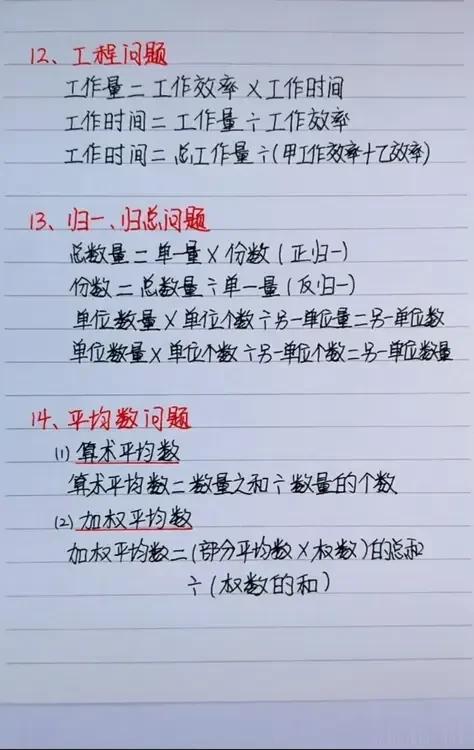 12、工程问题
工作量=工作效率×工作时间
工作时间=工作量÷工作效率
工作时间=总工作量÷(甲工作效率+乙效率)
13、归一、归总问题
总数量=单一量×份数(正归一)
份数=总数量÷单一量(反归一)
单位数量×单位个数÷另一单位量=另一单位数
单位数量×单位个数÷另一单位个数=另一单位数量
14、平均数问题
(1)算术平均数
算术平均数=数量之和÷数量的个数
(2)加权平均数
加权平均数=(部分平均数×权数)的总和
÷(权数的和)